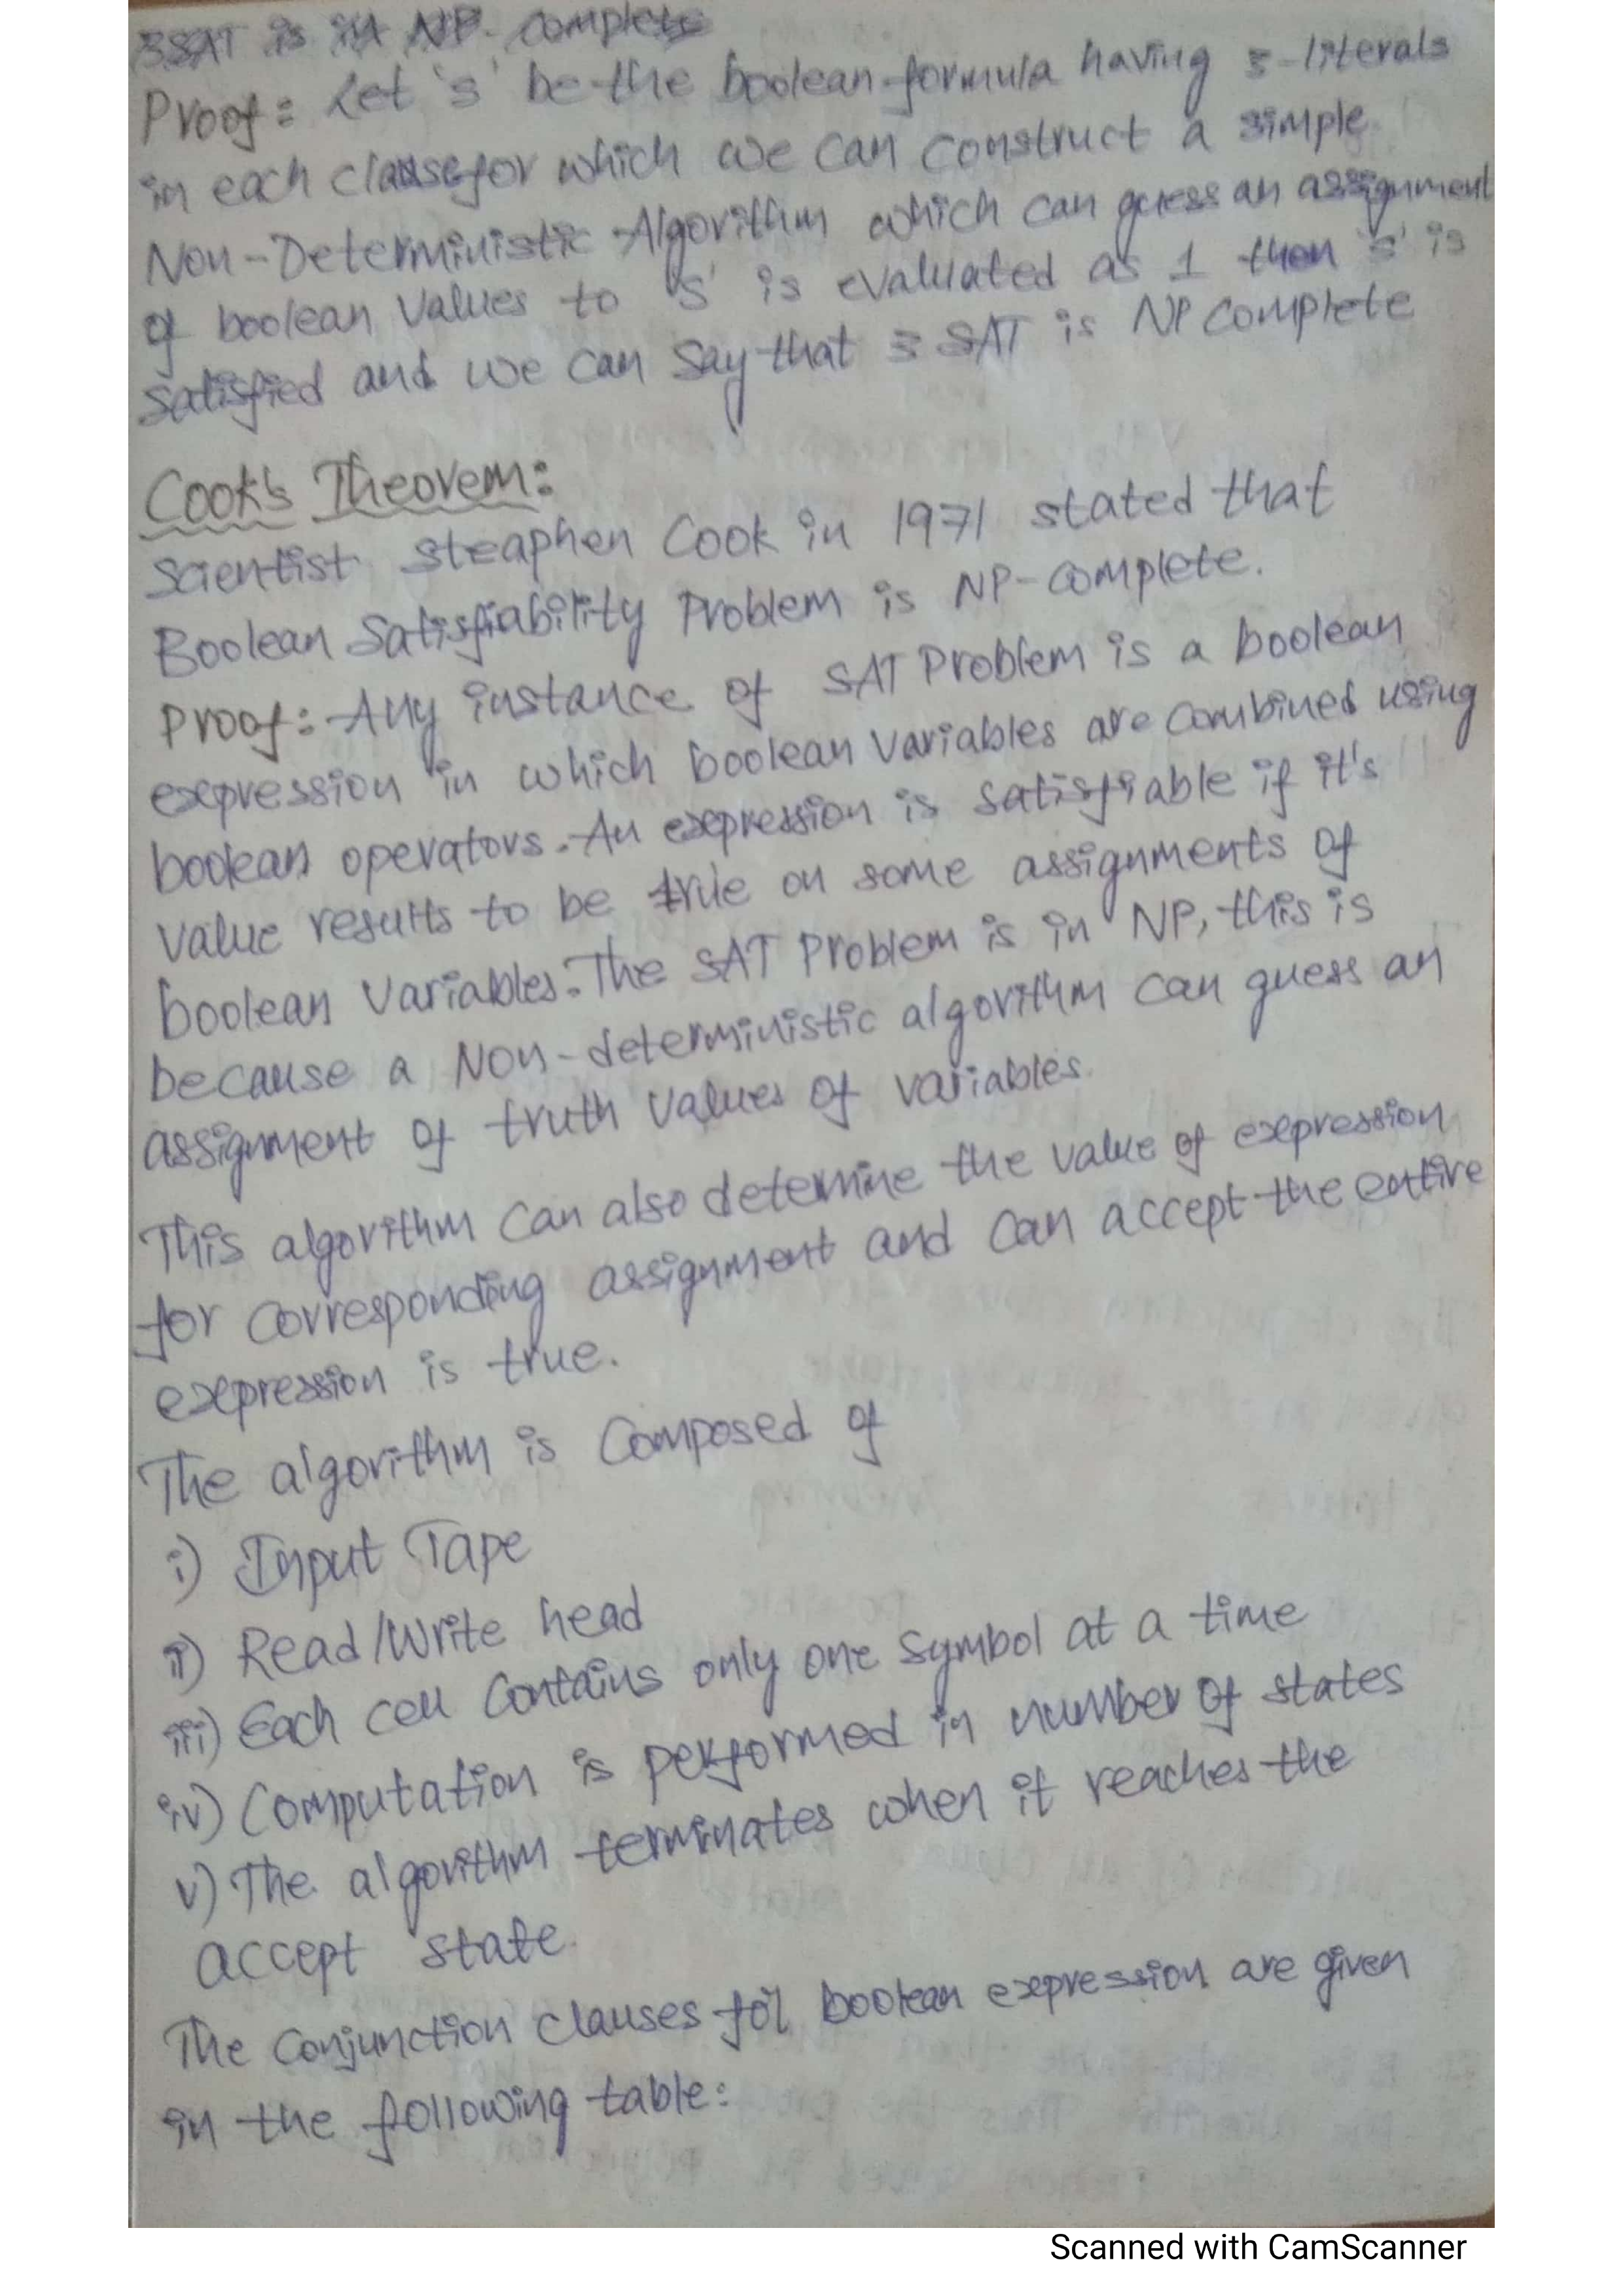 3SAT is in NP-Complete
Proof: Let 's' be the boolean formula having 3-literals
in each clause for which we can construct a simple
Non-Deterministic Algorithm which can guess an assignment
of boolean values to 's' is evaluated as 1 then 's' is
satisfied and we can say that 3 SAT is NP complete
Cook's Theorem:
Scientist Steaphen Cook in 1971 stated that
Boolean Satisfiability Problem is NP-complete.
Proof: Any instance of SAT Problem is a boolean
expression in which boolean variables are combined using
boolean operators. An expression is satisfiable if it's
value results to be true on some assignments of
boolean variables. The SAT Problem is in NP, this is
because a Non-deterministic algorithm can guess an
assignment of truth values of variables.
This algorithm can also determine the value of expression
for corresponding assignment and can accept the entire
expression is true.
The algorithm is Composed of
i) Input Tape
ii) Read/Write head
iii) Each cell contains only one symbol at a time
iv) Computation is performed in number of states
v) The algorithm terminates when it reaches the
accept state.
The Conjunction clauses for boolean expression are given
in the following table:
Scanned with CamScanner